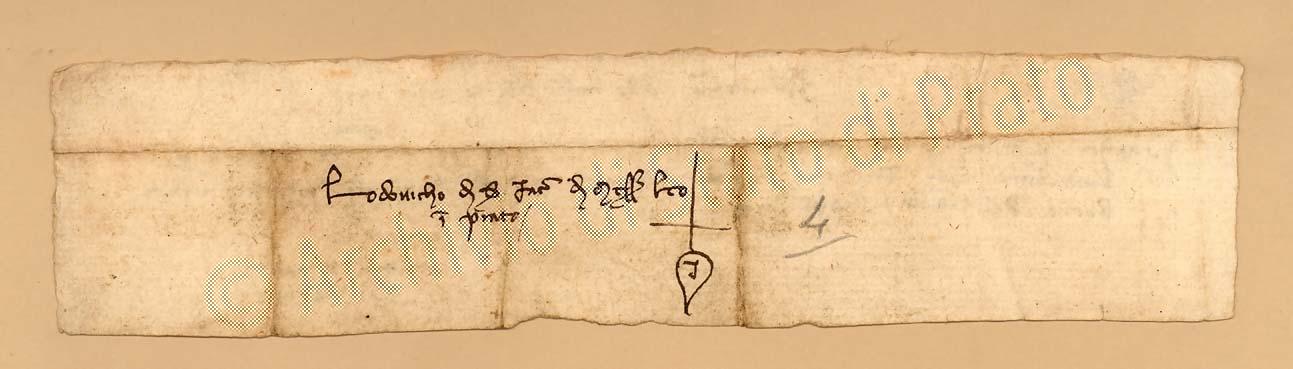 Lodovicho di s Iaco di Messr Leo
i prato
4
© Archivio di Stato di Prato